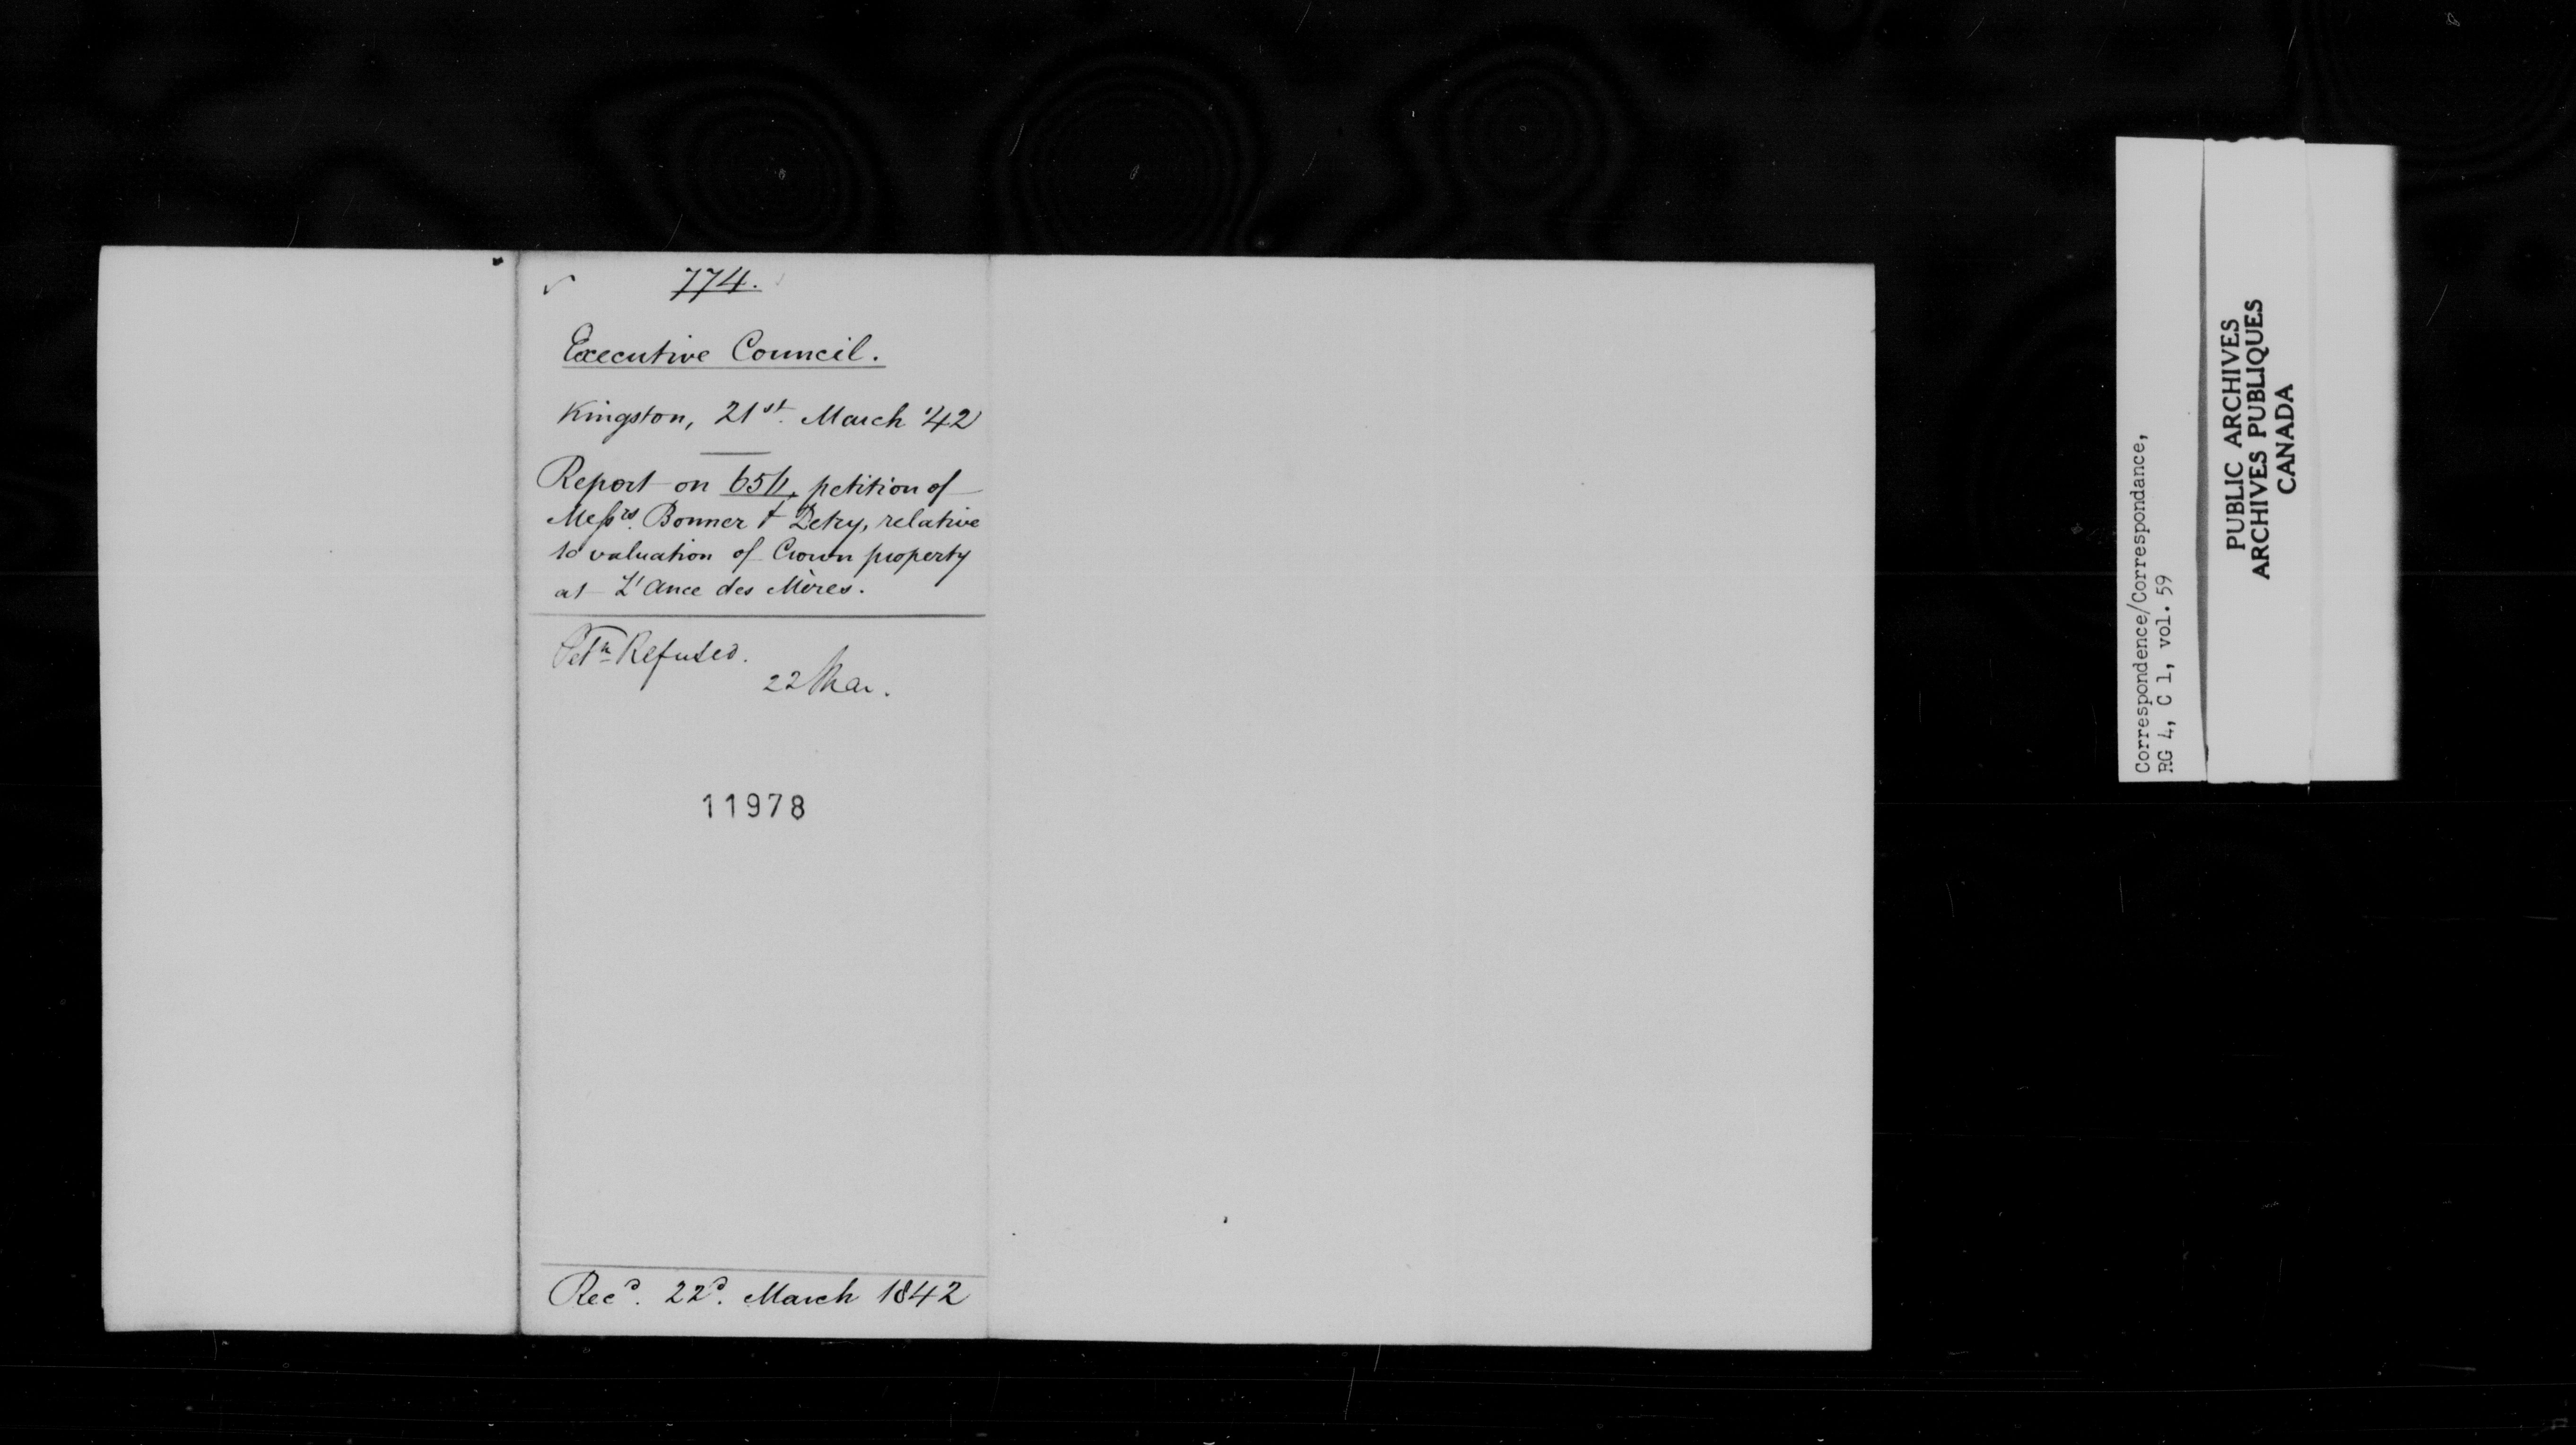 774.
Executive Council.
Kingston, 21st. March '42
Report on 654, petition of
Messrs. Bonner & Petry, relative
to valuation of Crown property
at L'Ance des Mères.
Petn Refused.
22 Mar.
11978
Recd. 22d. March 1842
Correspondence/Correspondance,
RG 4, C 1, vol. 59
PUBLIC ARCHIVES
ARCHIVES PUBLIQUES
CANADA